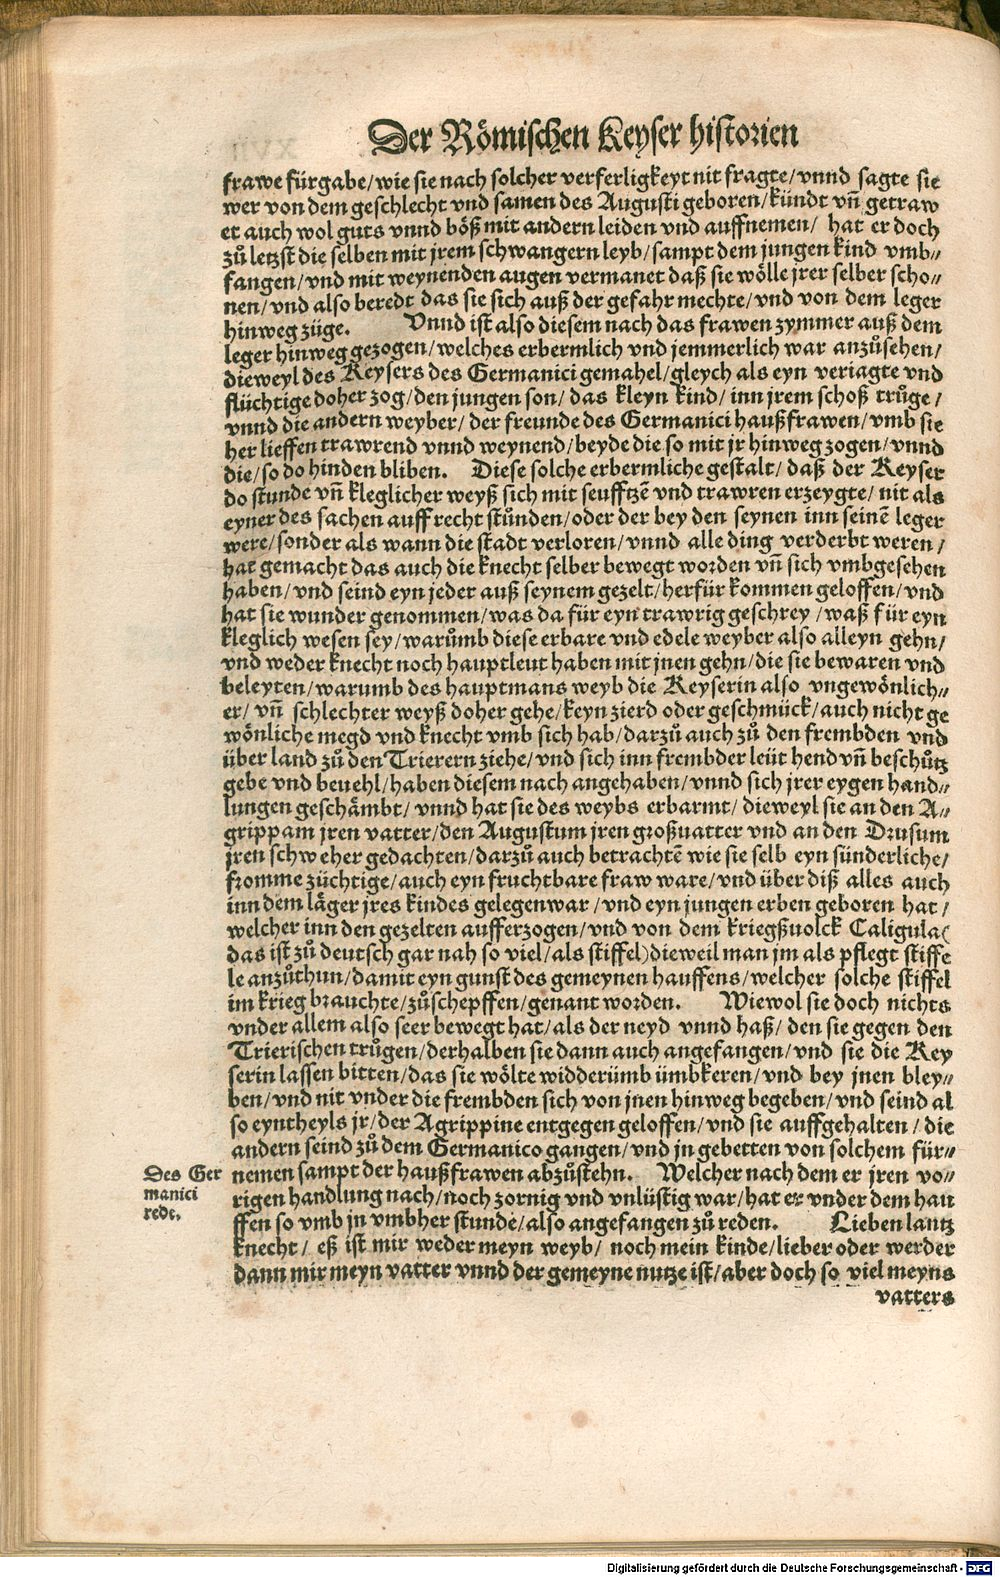 Der Römischen Keyser historien
frawe fürgabe/wie sie nach solcher verferligkeyt nit fragte/vnnd sagte sie
wer von dem geschlecht vnd samen des Augusti geboren/kündt vñ getraw
et auch wol guts vnnd böß mit andern leiden vnd auffnemen/ hat er doch
zů letzst die selben mit jrem schwangern leyb/sampt dem jungen kind vmb⸗
fangen/vnd mit weynenden augen vermanet daß sie wölle jrer selber scho⸗
nen/vnd also beredt das sie sich auß der gefahr mechte/vnd von dem leger
hinweg züge. Vnnd ist also diesem nach das frawen zymmer auß dem
leger hinweg gezogen/welches erbermlich vnd jemmerlich war anzůsehen/
dieweyl des Keysers des Germanici gemahel/gleych als eyn veriagte vnd
flüchtige doher zog/den jungen son/das kleyn kind/inn jrem schoß trůge/
vnnd die andern weyber/der freunde des Germanici haußfrawen/vmb sie
her lieffen trawrend vnnd weynend/beyde die so mit jr hinweg zogen/vnnd
die/so do hinden bliben. Diese solche erbermliche gestalt/daß der Keyser
do stunde vñ kleglicher weyß sich mit seufftzē vnd trawren erzeygte/nit als
eyner des sachen auffrecht stůnden/oder der bey den seynen inn seinē leger
were/sonder als wann die stadt verloren/vnnd alle ding verderbt weren/
hat gemacht das auch die knecht selber bewegt worden vñ sich vmbgesehen
haben/vnd seind eyn jeder auß seynem gezelt/herfür kommen geloffen/vnd
hat sie wunder genommen/was da für eyn trawrig geschrey/waß für eyn
kleglich wesen sey/warůmb diese erbare vnd edele weyber also alleyn gehn/
vnd weder knecht noch hauptleut haben mit jnen gehn/die sie bewaren vnd
beleyten/warumb des hauptmans weyb die Keyserin also vngewönlich⸗
er/vñ schlechter weyß doher gehe/keyn zierd oder geschmück/auch nicht ge
wönliche megd vnd knecht vmb sich hab/darzů auch zů den frembden vnd
über land zů den Trierern ziehe/vnd sich inn frembder leüt hend vñ beschůtz
gebe vnd beuehl/haben diesem nach angehaben/vnnd sich jrer eygen hand⸗
lungen geschämbt/vnnd hat sie des weybs erbarmt/dieweyl sie an den A⸗
grippam jren vatter/den Augustum jren großuatter vnd an den Drusum
jren schweher gedachten/darzů auch betrachtē wie sie selb eyn sünderliche/
fromme züchtige/auch eyn fruchtbare fraw ware/vnd über diß alles auch
inn dem läger jres kindes gelegen war/vnd eyn jungen erben geboren hat/
welcher inn den gezelten aufferzogen/vnd von dem kriegßuolck Caligula(
das ist zů deutsch gar nah so viel/als stiffel)dieweil man jm als pflegt stiffe
le anzůthun/damit eyn gunst des gemeynen hauffens/welcher solche stiffel
im krieg brauchte/zůschepffen/genant worden. Wiewol sie doch nichts
vnder allem also seer bewegt hat/als der neyd vnnd haß/den sie gegen den
Trierischen trůgen/derhalben sie dann auch angefangen/vnd sie die Key
serin lassen bitten/das sie wölte widderümb ümbkeren/vnd bey jnen bley⸗
ben/vnd nit vnder die frembden sich von jnen hinweg begeben/vnd seind al
so eyntheyls jr/der Agrippine entgegen geloffen/vnd sie auffgehalten/die
andern seind zů dem Germanico gangen/vnd jn gebetten von solchem für⸗
nemen sampt der haußfrawen abzůstehn. Welcher nach dem er jren vo⸗
rigen handlung nach/noch zornig vnd vnlüstig war/hat er vnder dem hau
ffen so vmb jn vmbher stunde/also angefangen zů reden. Lieben lantz
knecht/eß ist mir weder meyn weyb/noch mein kinde/lieber oder werder
dann mir meyn vatter vnnd der gemeyne nutze ist/aber doch so viel meyns
vatters
Des Ger
manici
rede.
Digitalisierung gefördert durch die Deutsche Forschungsgemeinschaft - DFG